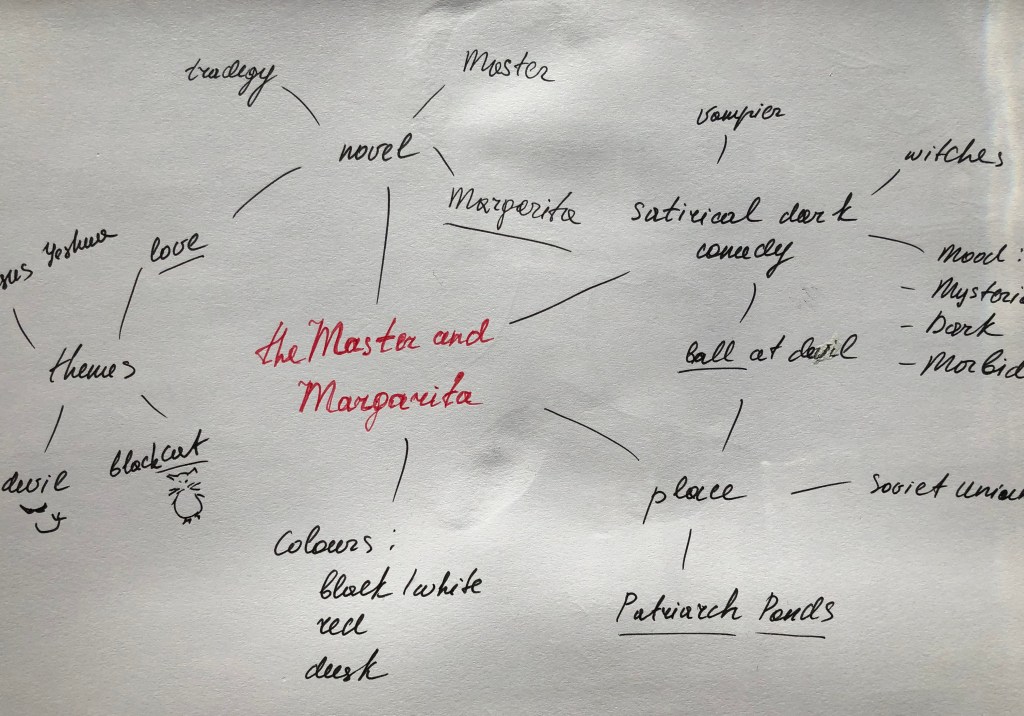 tradegy
Master
novel
Margarita
vampier
witches
satirical dark
comedy
Mood :
- Dark
- Morbid
Yeshua
love
themes
the Master and
Margarita
ball at devil
devil
black cat
place
Soviet Union
Colours :
black / white
red
dusk
Patriarch Ponds